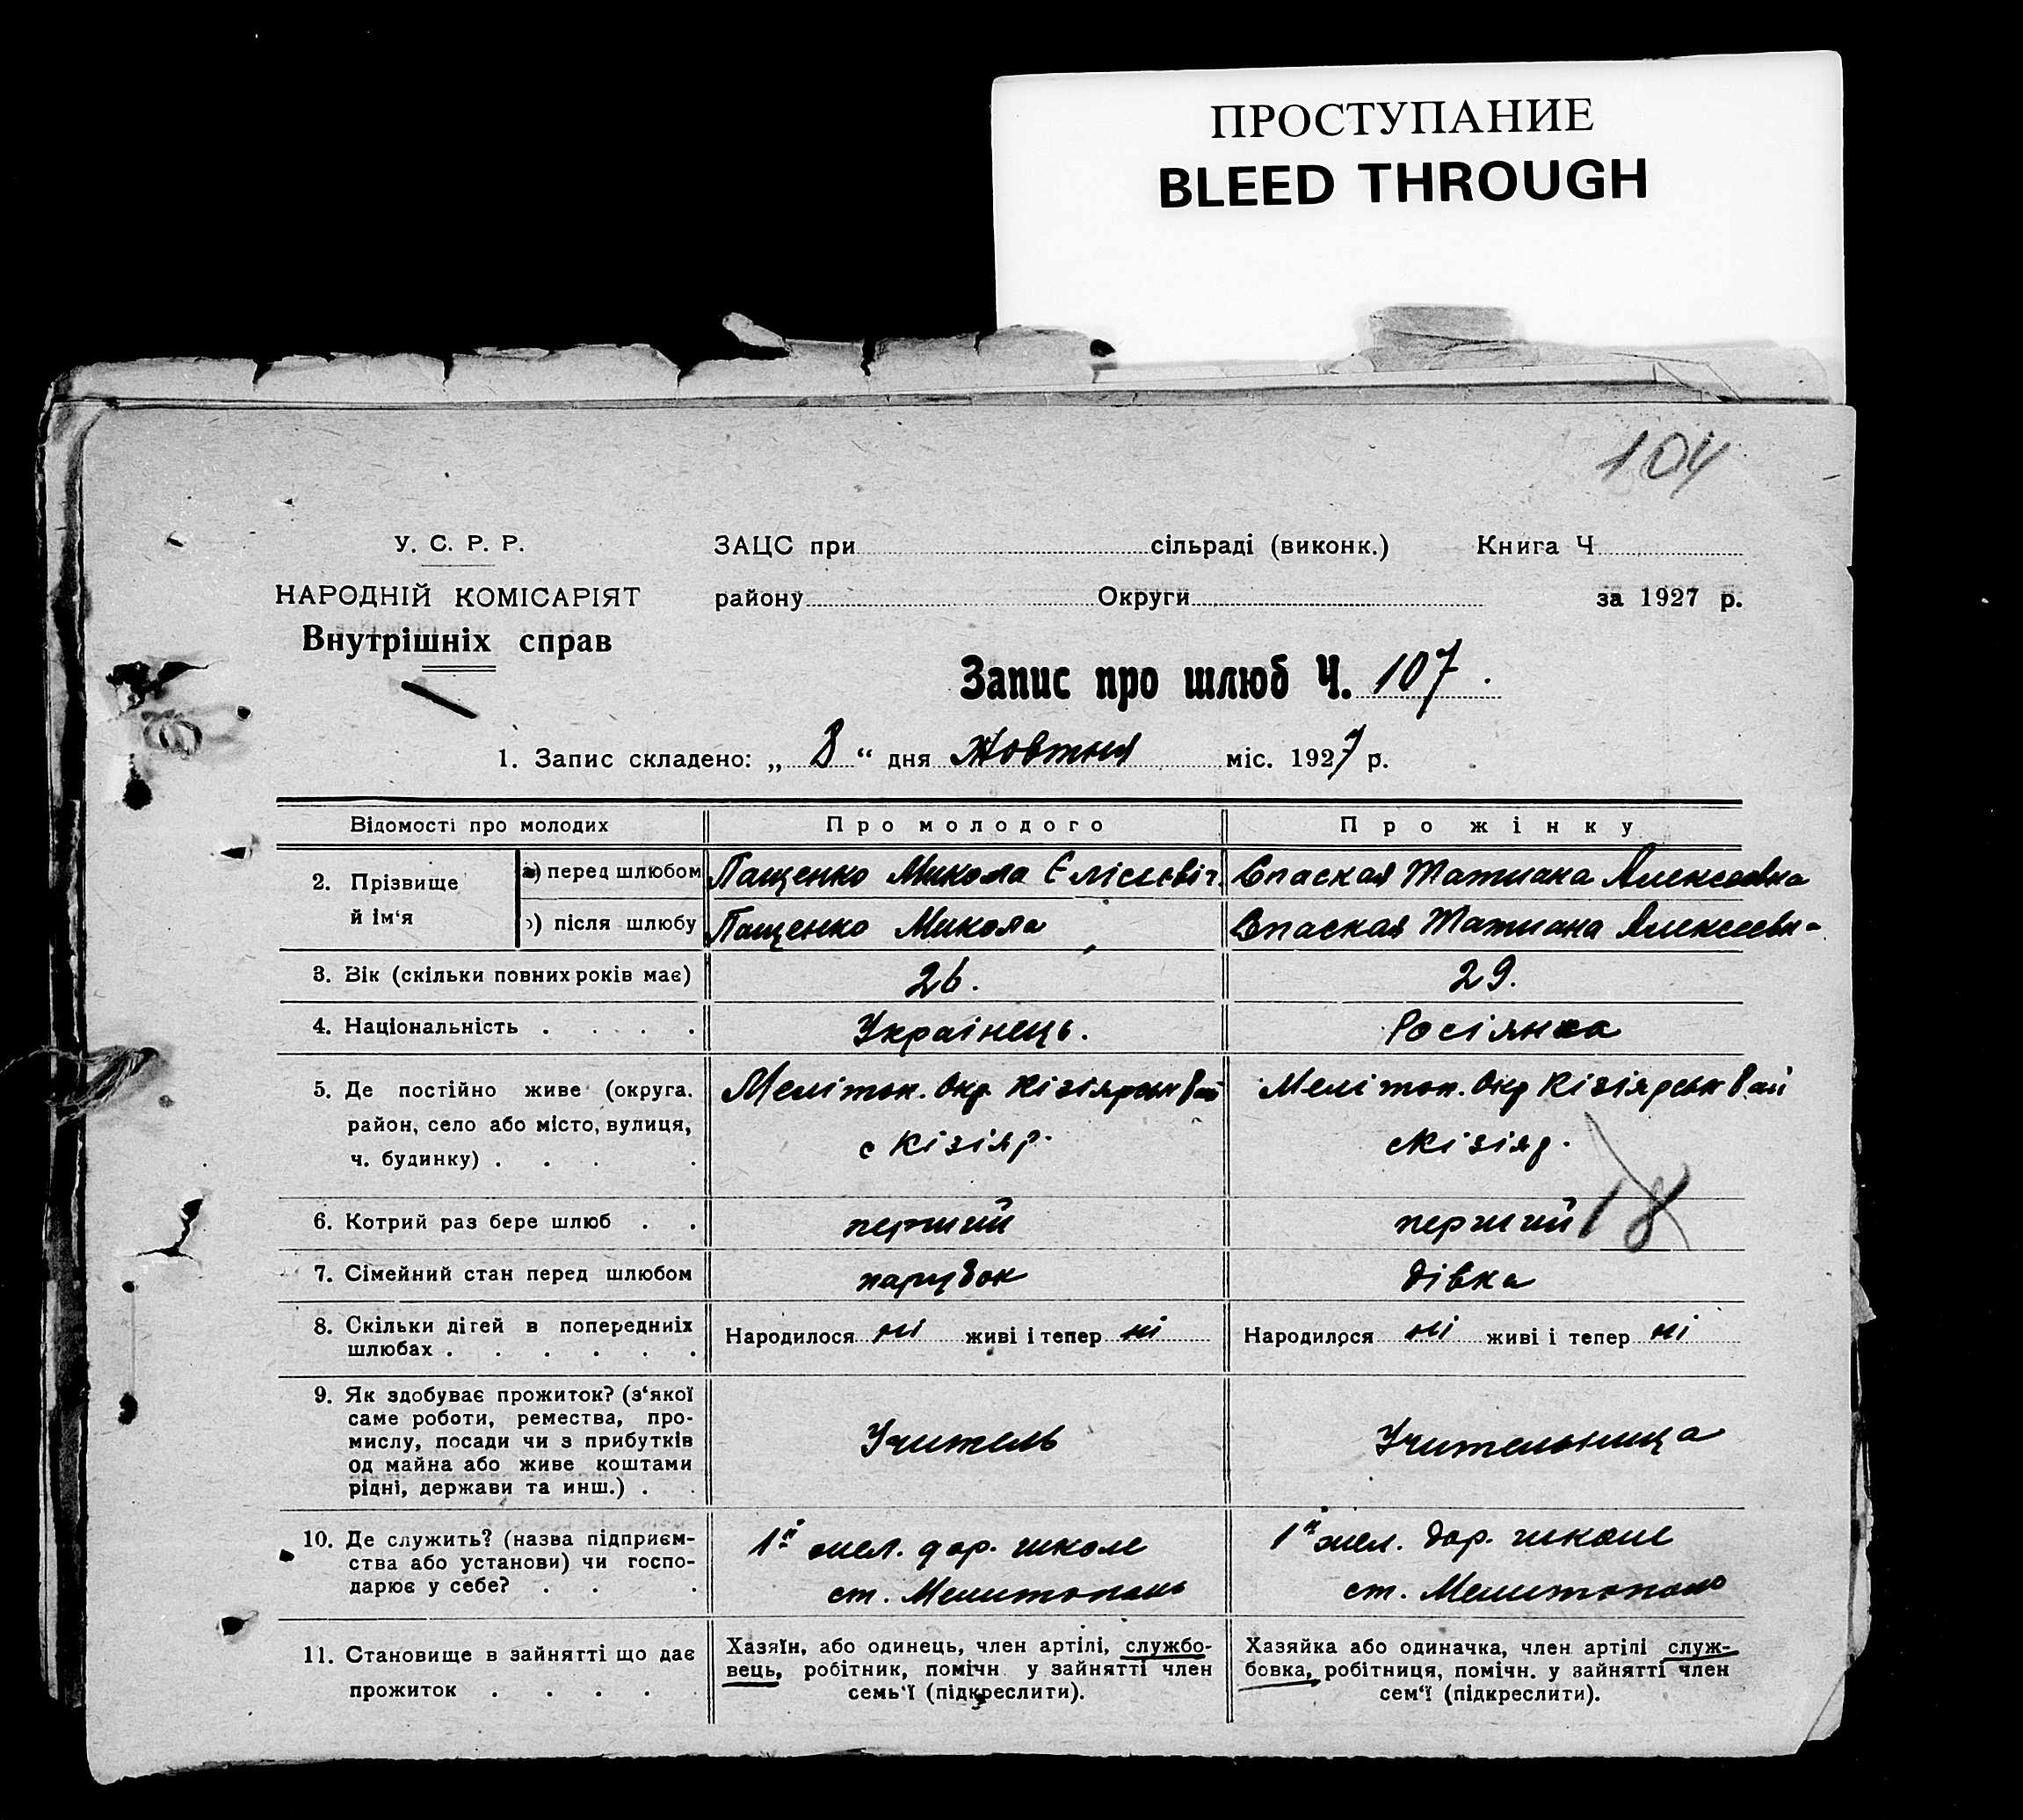 ПРОСТУПАНИЕ
BLEED THROUGH
104
У. С. Р. Р.
НАРОДНІЙ КОМІСАРІЯТ
Внутрішніх справ
ЗАЦС при сільраді (виконк.) Книга Ч
району Округи за 1927 р.
Запис про шлюб Ч. 107.
1. Запис складено: „ 8 “ дня Жовтня міс. 1927 р.
Відомості про молодих Про молодого Про жінку
2. Прізвище й ім‘я
а) перед шлюбом Пащенко Микола Єлісєєвіч. Спаская Татиана Алексеевна
б) після шлюбу Пащенко Микола Спаская Татиана Алексеевн-
3. Вік (скільки повних років має) 26. 29.
4. Національність . . . . . Українець. Росіянка
5. Де постійно живе (округа. Мелітоп. Окр. Кізіярськ Рай Мелітоп. Окр Кізіярськ Рай
район, село або місто, вулиця, с Кізіяр. с Кізіяр.
ч. будинку) . . . .
6. Котрий раз бере шлюб . . перший перший 18
7. Сімейний стан перед шлюбом парубок дівка
8. Скільки дітей в попередніх Народилося ні живі і тепер ні Народилося ні живі і тепер ні
шлюбах . . . . . .
9. Як здобуває прожиток? (з‘якої
саме роботи, ремества, про-
мислу, посади чи з прибутків Учитель Учительница
од майна або живе коштами
рідні, держави та инш.) . .
10. Де служить? (назва підприєм- 1й жел. дор. школе 1й жел. дор. школе
ства або установи) чи госпо- ст. Мелитополь ст. Мелитополь
дарює у себе? . . .
11. Становище в зайнятті що дає
прожиток . . . . .
Хазяїн, або одинець, член артілі, службо-
вець, робітник, помічн. у зайнятті член
семь‘ї (підкреслити).
Хазяйка або одиначка, член артілі служ-
бовка, робітниця, помічн. у зайнятті член
сем‘ї (підкреслити).